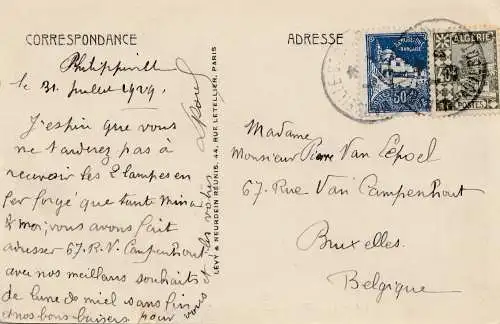 CORRESPONDANCE
Philippeville
le 31 juillet 1929.
J'espère que vous
ne tarderez pas à
recevoir les 2 lampes en
fer forgé que tante Mina
& moi, vous avons fait
adresser 67. R. V. Campenhout
avec nos meilleurs souhaits
de lune de miel sans fin
et nos bons baisers pour
vous et
LÉVY & NEURDEIN RÉUNIS, 44, RUE LETELLIER, PARIS
ADRESSE
50c
ALGÉRIE
POSTES
Madame
Monsieur Pierre Van Lepoel
67. Rue Van Campenhout
Bruxelles.
Belgique